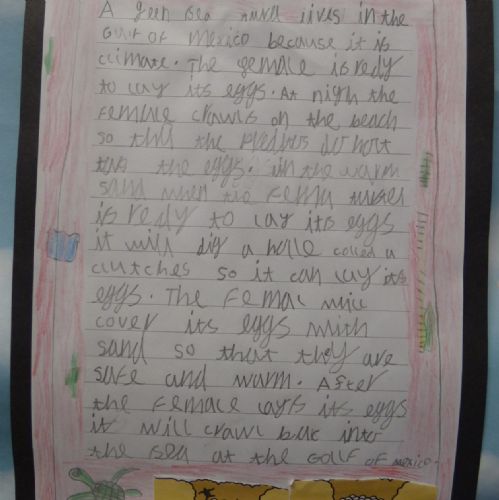 A geen sea turd lives in the
Gulf of mexico because it is
climate. The gemale is redy
to lay its eggs. At nigh the
female crawls on the beach
so that the Predtus do not
the eggs. in the warm
sand when the Fema turter
is redy to lay its eggs
it will dig a holle called a
clutches so it can lay its
eggs. The Femal will
cover its eggs with
sand so that they are
safe and warm. After
the Female lays its eggs
it will crawl bak into
the sea at the Golf of mexico.